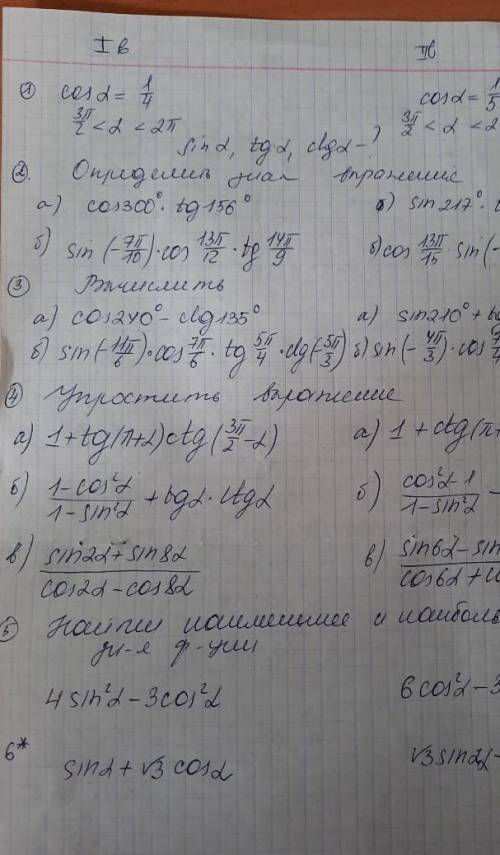 I в
II в
① cos α = 1/4
cos α = 1/5
3π/2 < α < 2π
3π/2 < α < 2
sin α, tg α, ctg α - ?
②. Определить знак выражение
а) cos300° · tg156°
а) sin 217° ·
б) sin (-7π/10) · cos 13π/12 · tg 14π/9
б) cos 13π/15 · sin (-
③ Вычислить
а) cos240° - ctg135°
а) sin210° +
б) sin(-11π/6) · cos 7π/6 · tg 5π/4 · ctg(-5π/3)
б) sin(-4π/3) · cos
④ Упростить выражение
а) 1 + tg(π+α) ctg(3π/2 - α)
а) 1 + ctg(π+
б) (1-cos²α)/(1-sin²α) + tgα · ctgα
б) (cos²α-1)/(1-sin²α) -
в) (sin2α + sin8α)/(cos2α - cos8α)
в) (sin6α - sin)/(cos6α + co
⑤ Найти наименьшее и наиболь
зн-я ф-ции
4 sin²α - 3cos²α
6 cos²α - 3
6* sin α + √3 cos α
√3 sin2α -